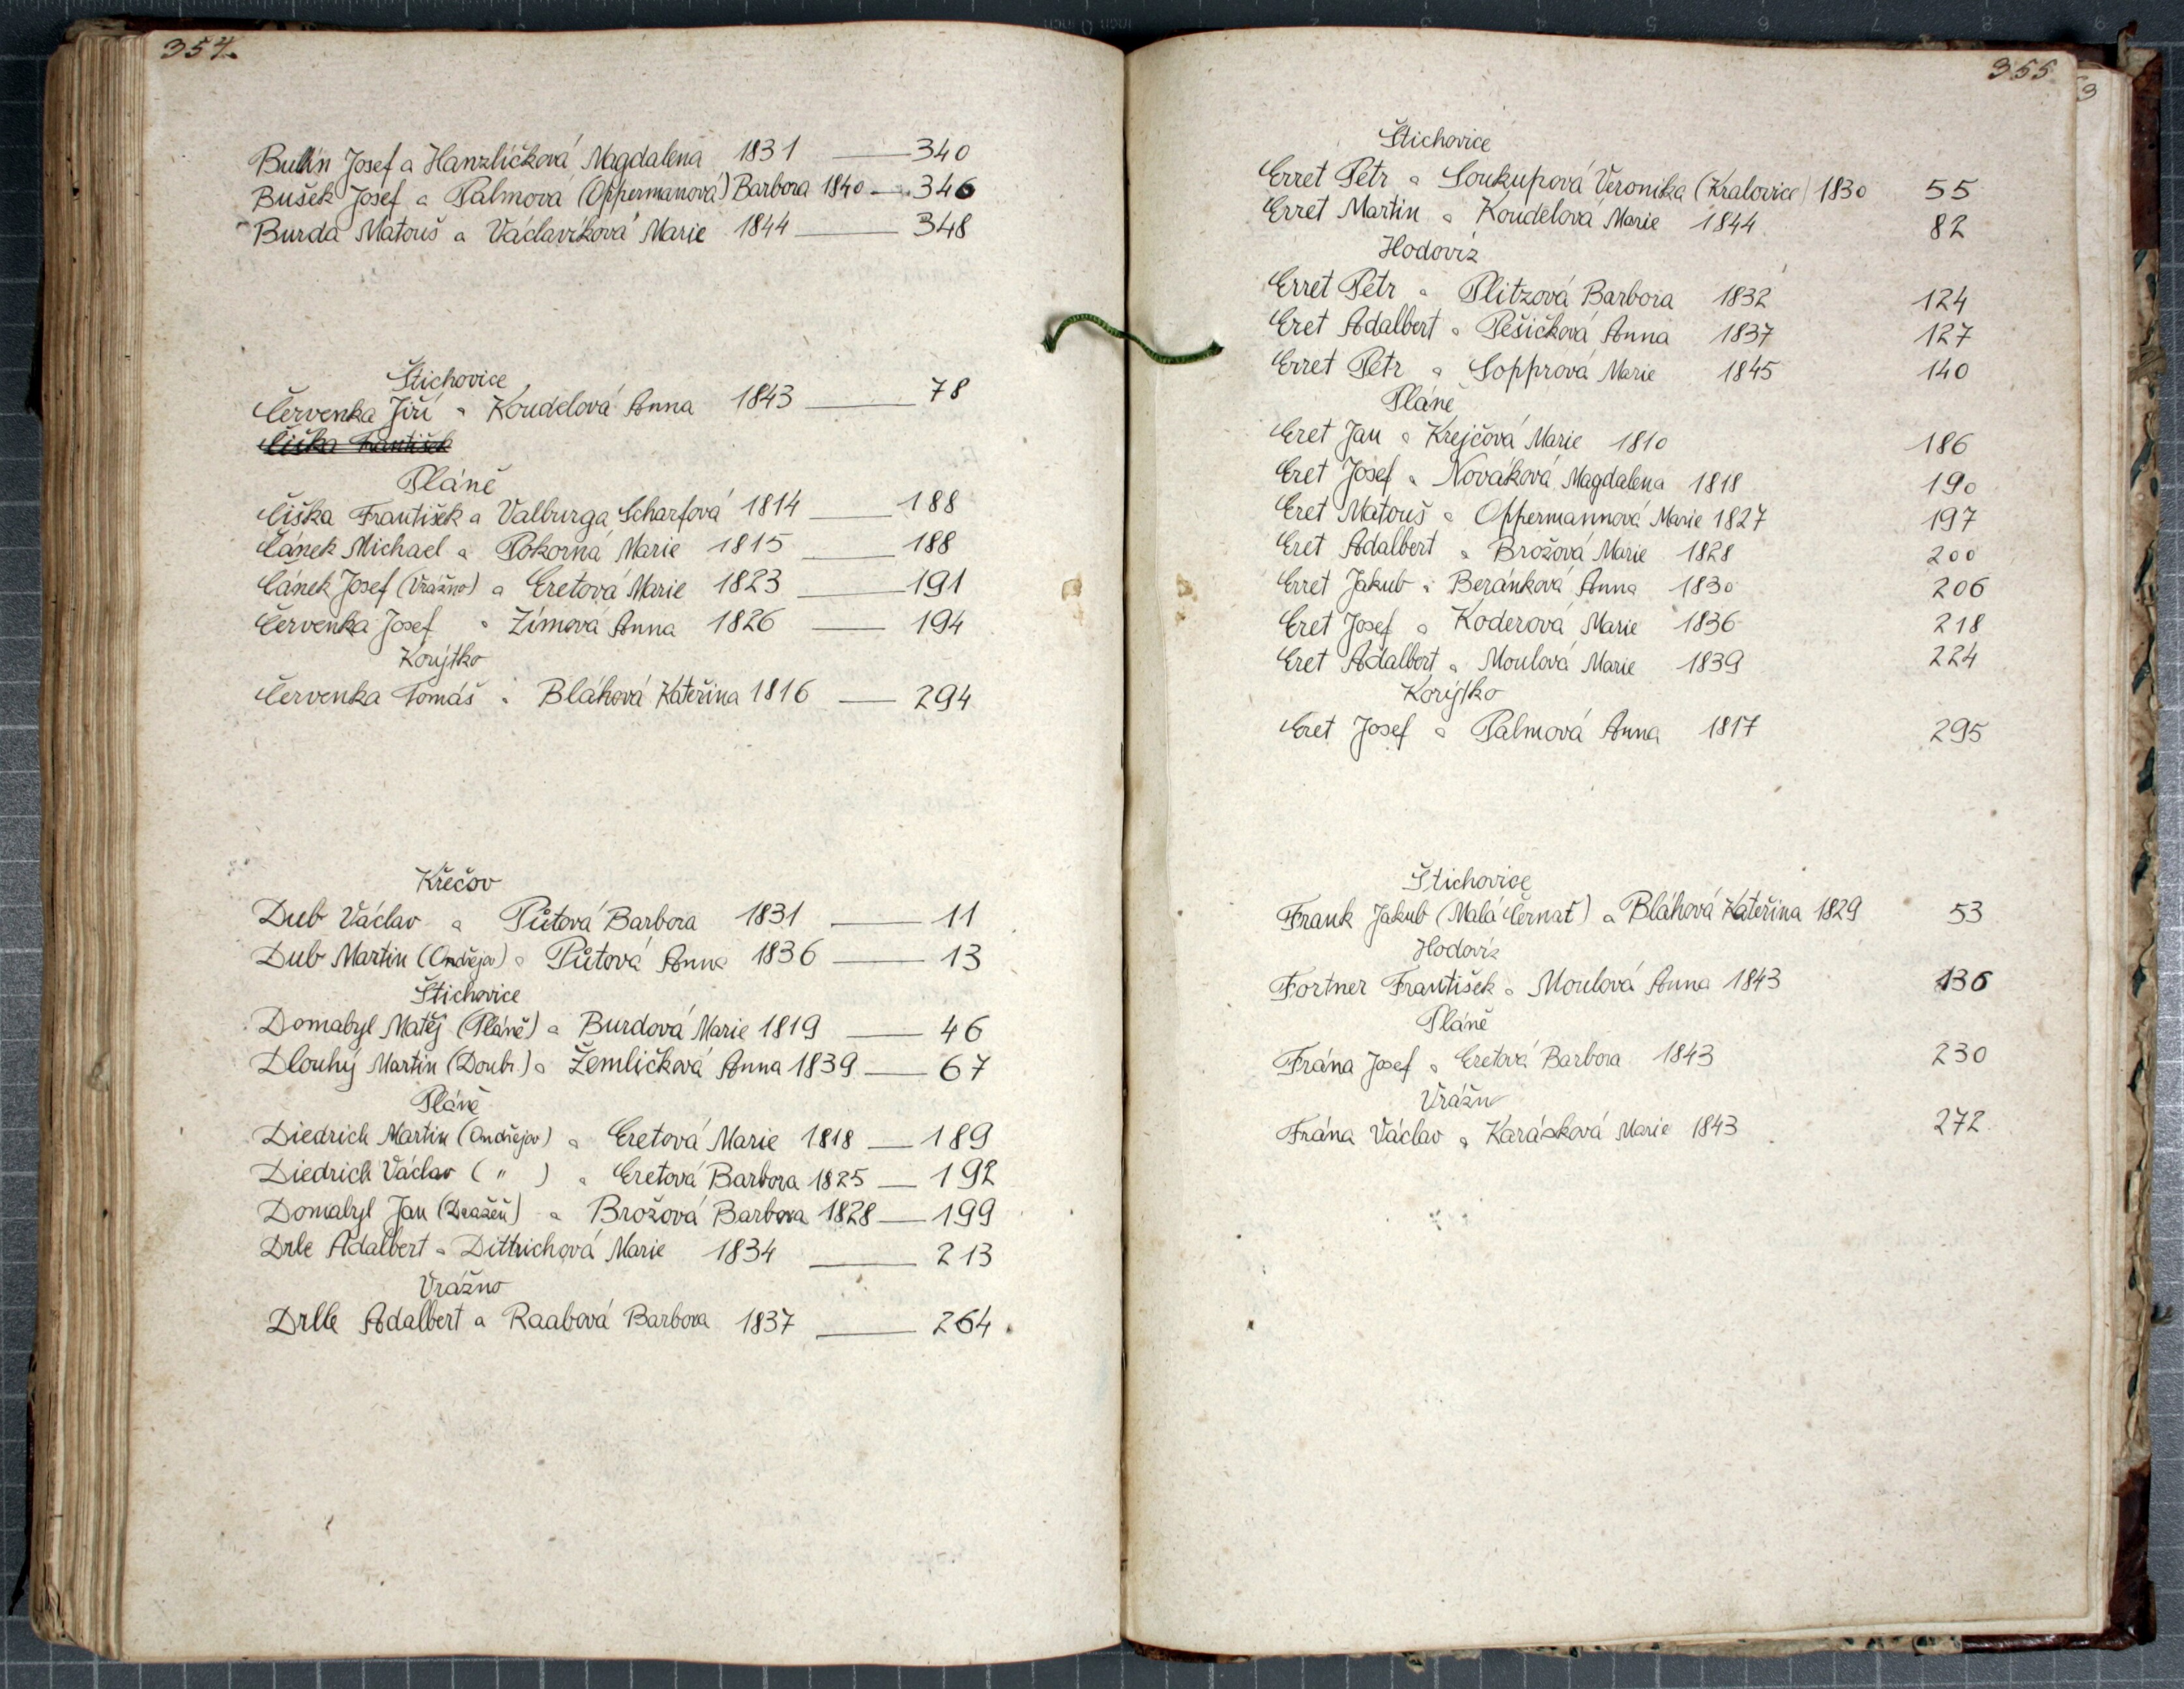 354.
Bulín Josef a Hanzlíčková Magdalena 1831 — 340
Bušek Josef a Palmova (Oppermanová) Barbora 1840 — 346
Burda Matouš a Václavíková Marie 1844 — 348
Štichovice
Červenka Jiří a Koudelová Anna 1843 — 78
Čiška František
Pláně
Čiška František a Valburga Scharfová 1814 — 188
Čánek Michael a Pokorná Marie 1815 — 188
Čánek Josef (Vrážno) a Eretová Marie 1823 — 191
Červenka Josef a Zímová Anna 1826 — 194
Korýtko
Červenka Tomáš a Bláhová Kateřina 1816 — 294
Křečov
Dub Václav a Půtová Barbora 1831 — 11
Dub Martin (Ondřejov) a Půtová Anna 1836 — 13
Štichovice
Domabyl Matěj (Pláně) a Burdová Marie 1819 — 46
Dlouhý Martin (Doubr.) a Žemličková Anna 1839 — 67
Pláně
Diedrich Martin (Ondřejov) a Eretová Marie 1818 — 189
Diedrich Václav ( " ) a Eretová Barbora 1825 — 192
Domabyl Jan (Dražeň) a Brožová Barbora 1828 — 199
Drle Adalbert a Dittrichová Marie 1834 — 213
Vrážno
Drlle Adalbert a Raabová Barbora 1837 — 264.
355
3
Štichovice
Erret Petr a Soukupová Veronika (Kralovice) 1830 55
Erret Martin a Koudelová Marie 1844 82
Hodovíz
Erret Petr a Plitzová Barbora 1832 124
Eret Adalbert a Pešičková Anna 1837 127
Erret Petr a Sopprová Marie 1845 140
Pláně
Eret Jan a Krejčová Marie 1810 186
Eret Josef a Nováková Magdalena 1818 190
Eret Matouš a Oppermannová Marie 1827 197
Eret Adalbert a Brožová Marie 1828 200
Erret Jakub a Beránková Anna 1830 206
Eret Josef a Koderová Marie 1836 218
Eret Adalbert a Moulová Marie 1839 224
Korýtko
Eret Josef a Palmová Anna 1817 295
Štichovice
Frank Jakub (Malá Černať) a Bláhová Kateřina 1829 53
Hodovíz
Fortner František a Moulová Anna 1843 136
Pláně
Frána Josef a Eretová Barbora 1843 230
Vrážno
Frána Václav a Karásková Marie 1843 272